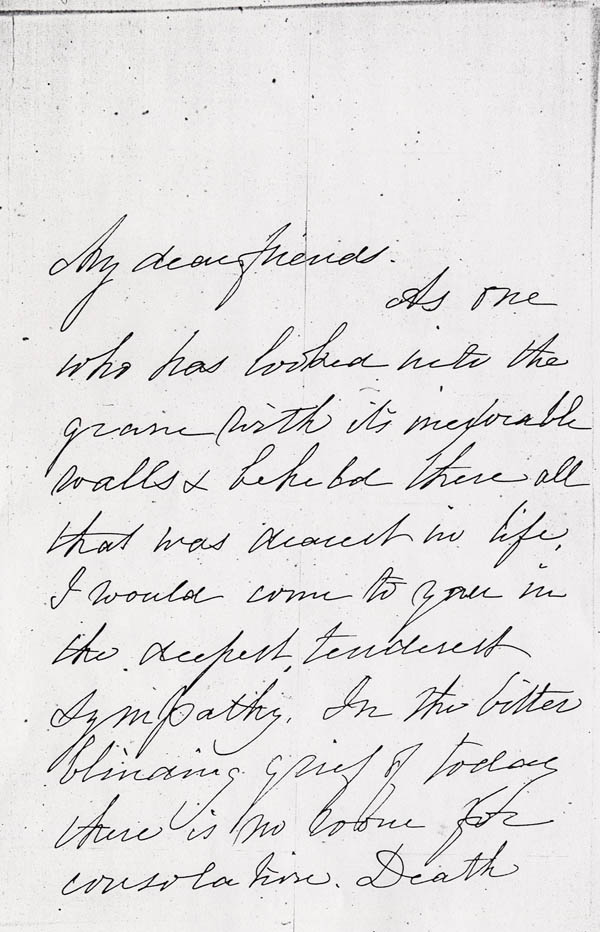 My dear friends.
As one
who has looked into the
grave with its inexorable
walls & beheld there all
that was dearest in life,
I would come to you in
the deepest, tenderest
sympathy. In the bitter
blinding grief of today
there is no room for
consolation. Death